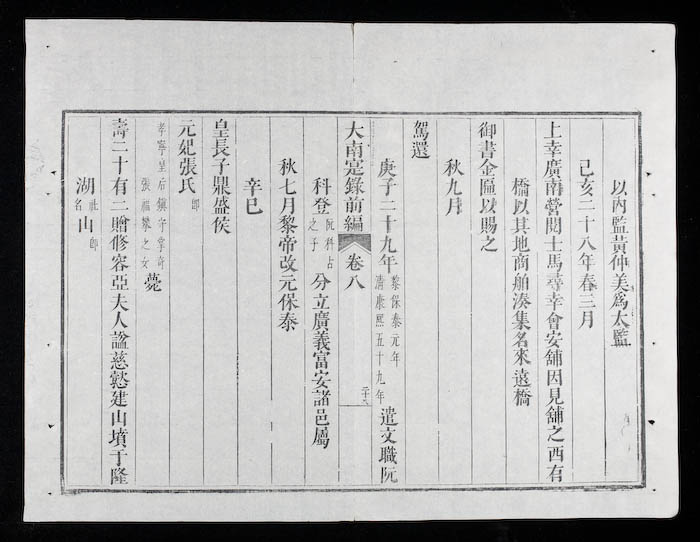 以內監黃仲美爲太監
己亥二十八年春三月
上幸廣南營閱士馬尋幸會安舖因見舖之西有
橋以其地商舶湊集名來遠橋
御書金匾以賜之
秋九月
駕還
庚子二十九年黎保泰元年清康熙五十九年遣文職阮
大南寔錄前編 卷八 二十六
科登阮科占之子分立廣義富安諸邑屬
秋七月黎帝改元保泰
辛巳
皇長子鼎盛侯
元妃張氏卽
孝寧皇后鎮守掌奇張福攀之女薨
壽二十有二贈修容亞夫人諡慈懿建山墳于隆
湖社名山卽